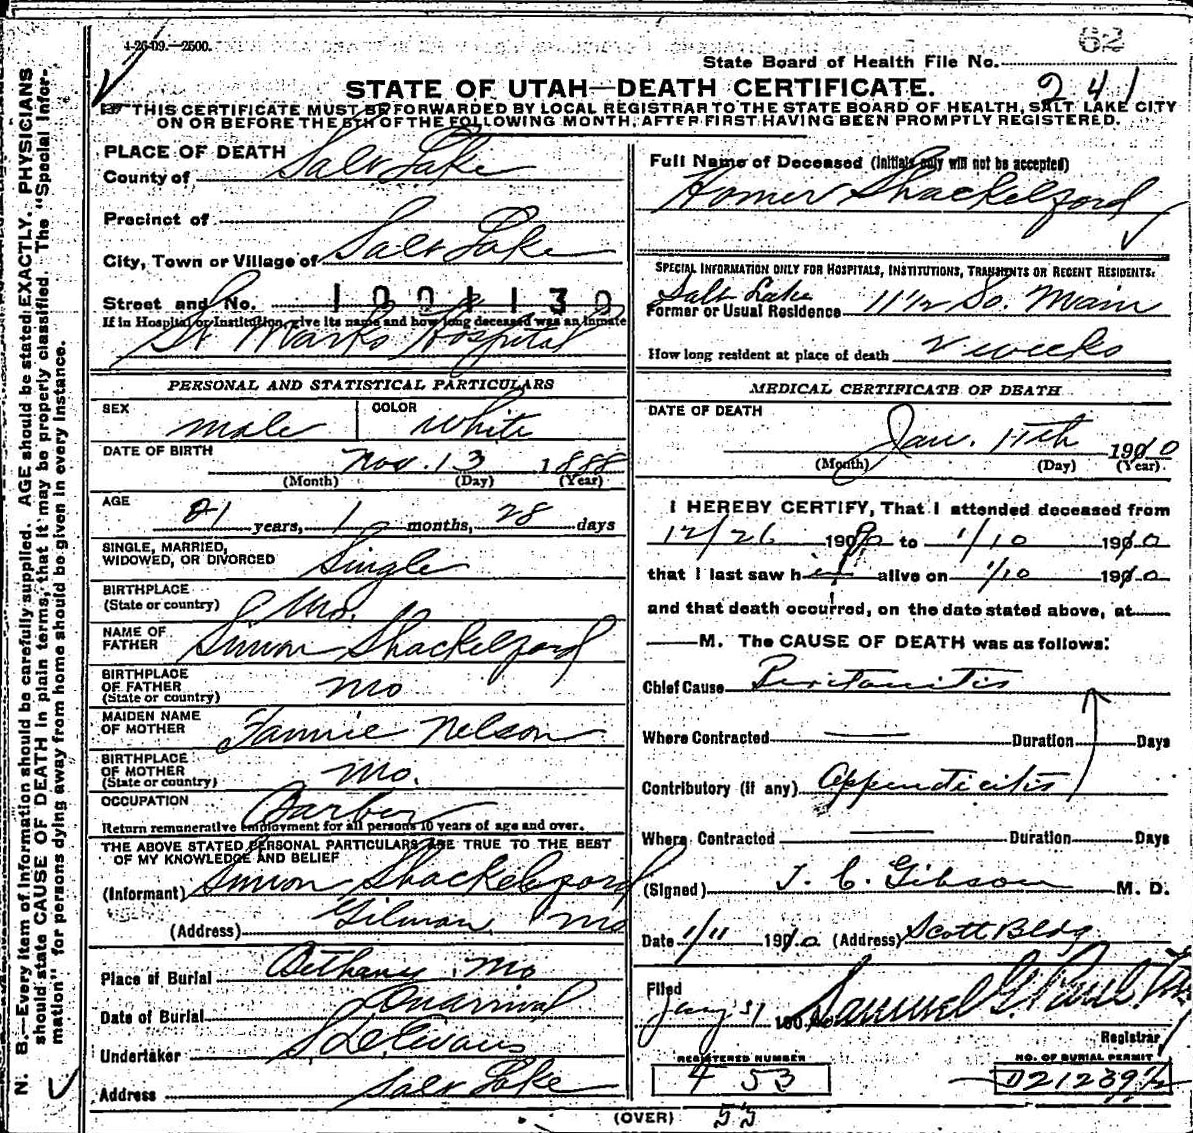 4-26-09.—2500.
62
State Board of Health File No.
241
STATE OF UTAH—DEATH CERTIFICATE.
☞ THIS CERTIFICATE MUST BE FORWARDED BY LOCAL REGISTRAR TO THE STATE BOARD OF HEALTH, SALT LAKE CITY
ON OR BEFORE THE 5TH OF THE FOLLOWING MONTH, AFTER FIRST HAVING BEEN PROMPTLY REGISTERED.
N. B.—Every item of information should be carefully supplied. AGE should be stated EXACTLY. PHYSICIANS
should state CAUSE OF DEATH in plain terms, that it may be properly classified. The "Special Infor-
mation" for persons dying away from home should be given in every instance.
PLACE OF DEATH
County of Salt Lake
Precinct of
City, Town or Village of Salt Lake
Street and No. 1001130
If in Hospital or Institution, give its name and how long deceased was an inmate
St Marks Hospital
PERSONAL AND STATISTICAL PARTICULARS
SEX male COLOR White
DATE OF BIRTH Nov. 13 1888
(Month) (Day) (Year)
AGE 21 years, 1 months, 28 days
SINGLE, MARRIED,
WIDOWED, OR DIVORCED Single
BIRTHPLACE
(State or country) Mo.
NAME OF
FATHER Simon Shackelford
BIRTHPLACE
OF FATHER
(State or country) Mo
MAIDEN NAME
OF MOTHER Fannie Nelson
BIRTHPLACE
OF MOTHER
(State or country) Mo.
OCCUPATION Barber
Return remunerative employment for all persons 10 years of age and over.
THE ABOVE STATED PERSONAL PARTICULARS ARE TRUE TO THE BEST
OF MY KNOWLEDGE AND BELIEF
(Informant) Simon Shackelford
(Address) Gilman, Mo
Place of Burial Bethany, Mo
Date of Burial On arrival
Undertaker S. D. Evans
Address Salt Lake
Full Name of Deceased (Initials only will not be accepted)
Homer Shackelford
SPECIAL INFORMATION ONLY FOR HOSPITALS, INSTITUTIONS, TRANSIENTS OR RECENT RESIDENTS:
Salt Lake
Former or Usual Residence 11 1/2 So. Main
How long resident at place of death V weeks
MEDICAL CERTIFICATE OF DEATH
DATE OF DEATH
Jan. 11th 1910
(Month) (Day) (Year)
I HEREBY CERTIFY, That I attended deceased from
12/26 1909 to 1/10 1910
that I last saw him alive on 1/10 1910
and that death occurred, on the date stated above, at
M. The CAUSE OF DEATH was as follows:
Chief Cause Peritonitis
Where Contracted — Duration Days
Contributory (if any) Appendicitis
Where Contracted — Duration Days
(Signed) T. C. Gibson M. D.
Date 1/11 1910 (Address) Scott Bldg
Filed
Samuel G. Paul
Registrar
REGISTERED NUMBER
453
NO. OF BURIAL PERMIT
(OVER) 53